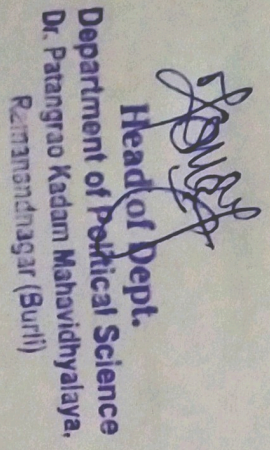 Head of Dept.
Department of Political Science
Dr. Patangrao Kadam Mahavidhyalaya,
Ramanandnagar (Burli)